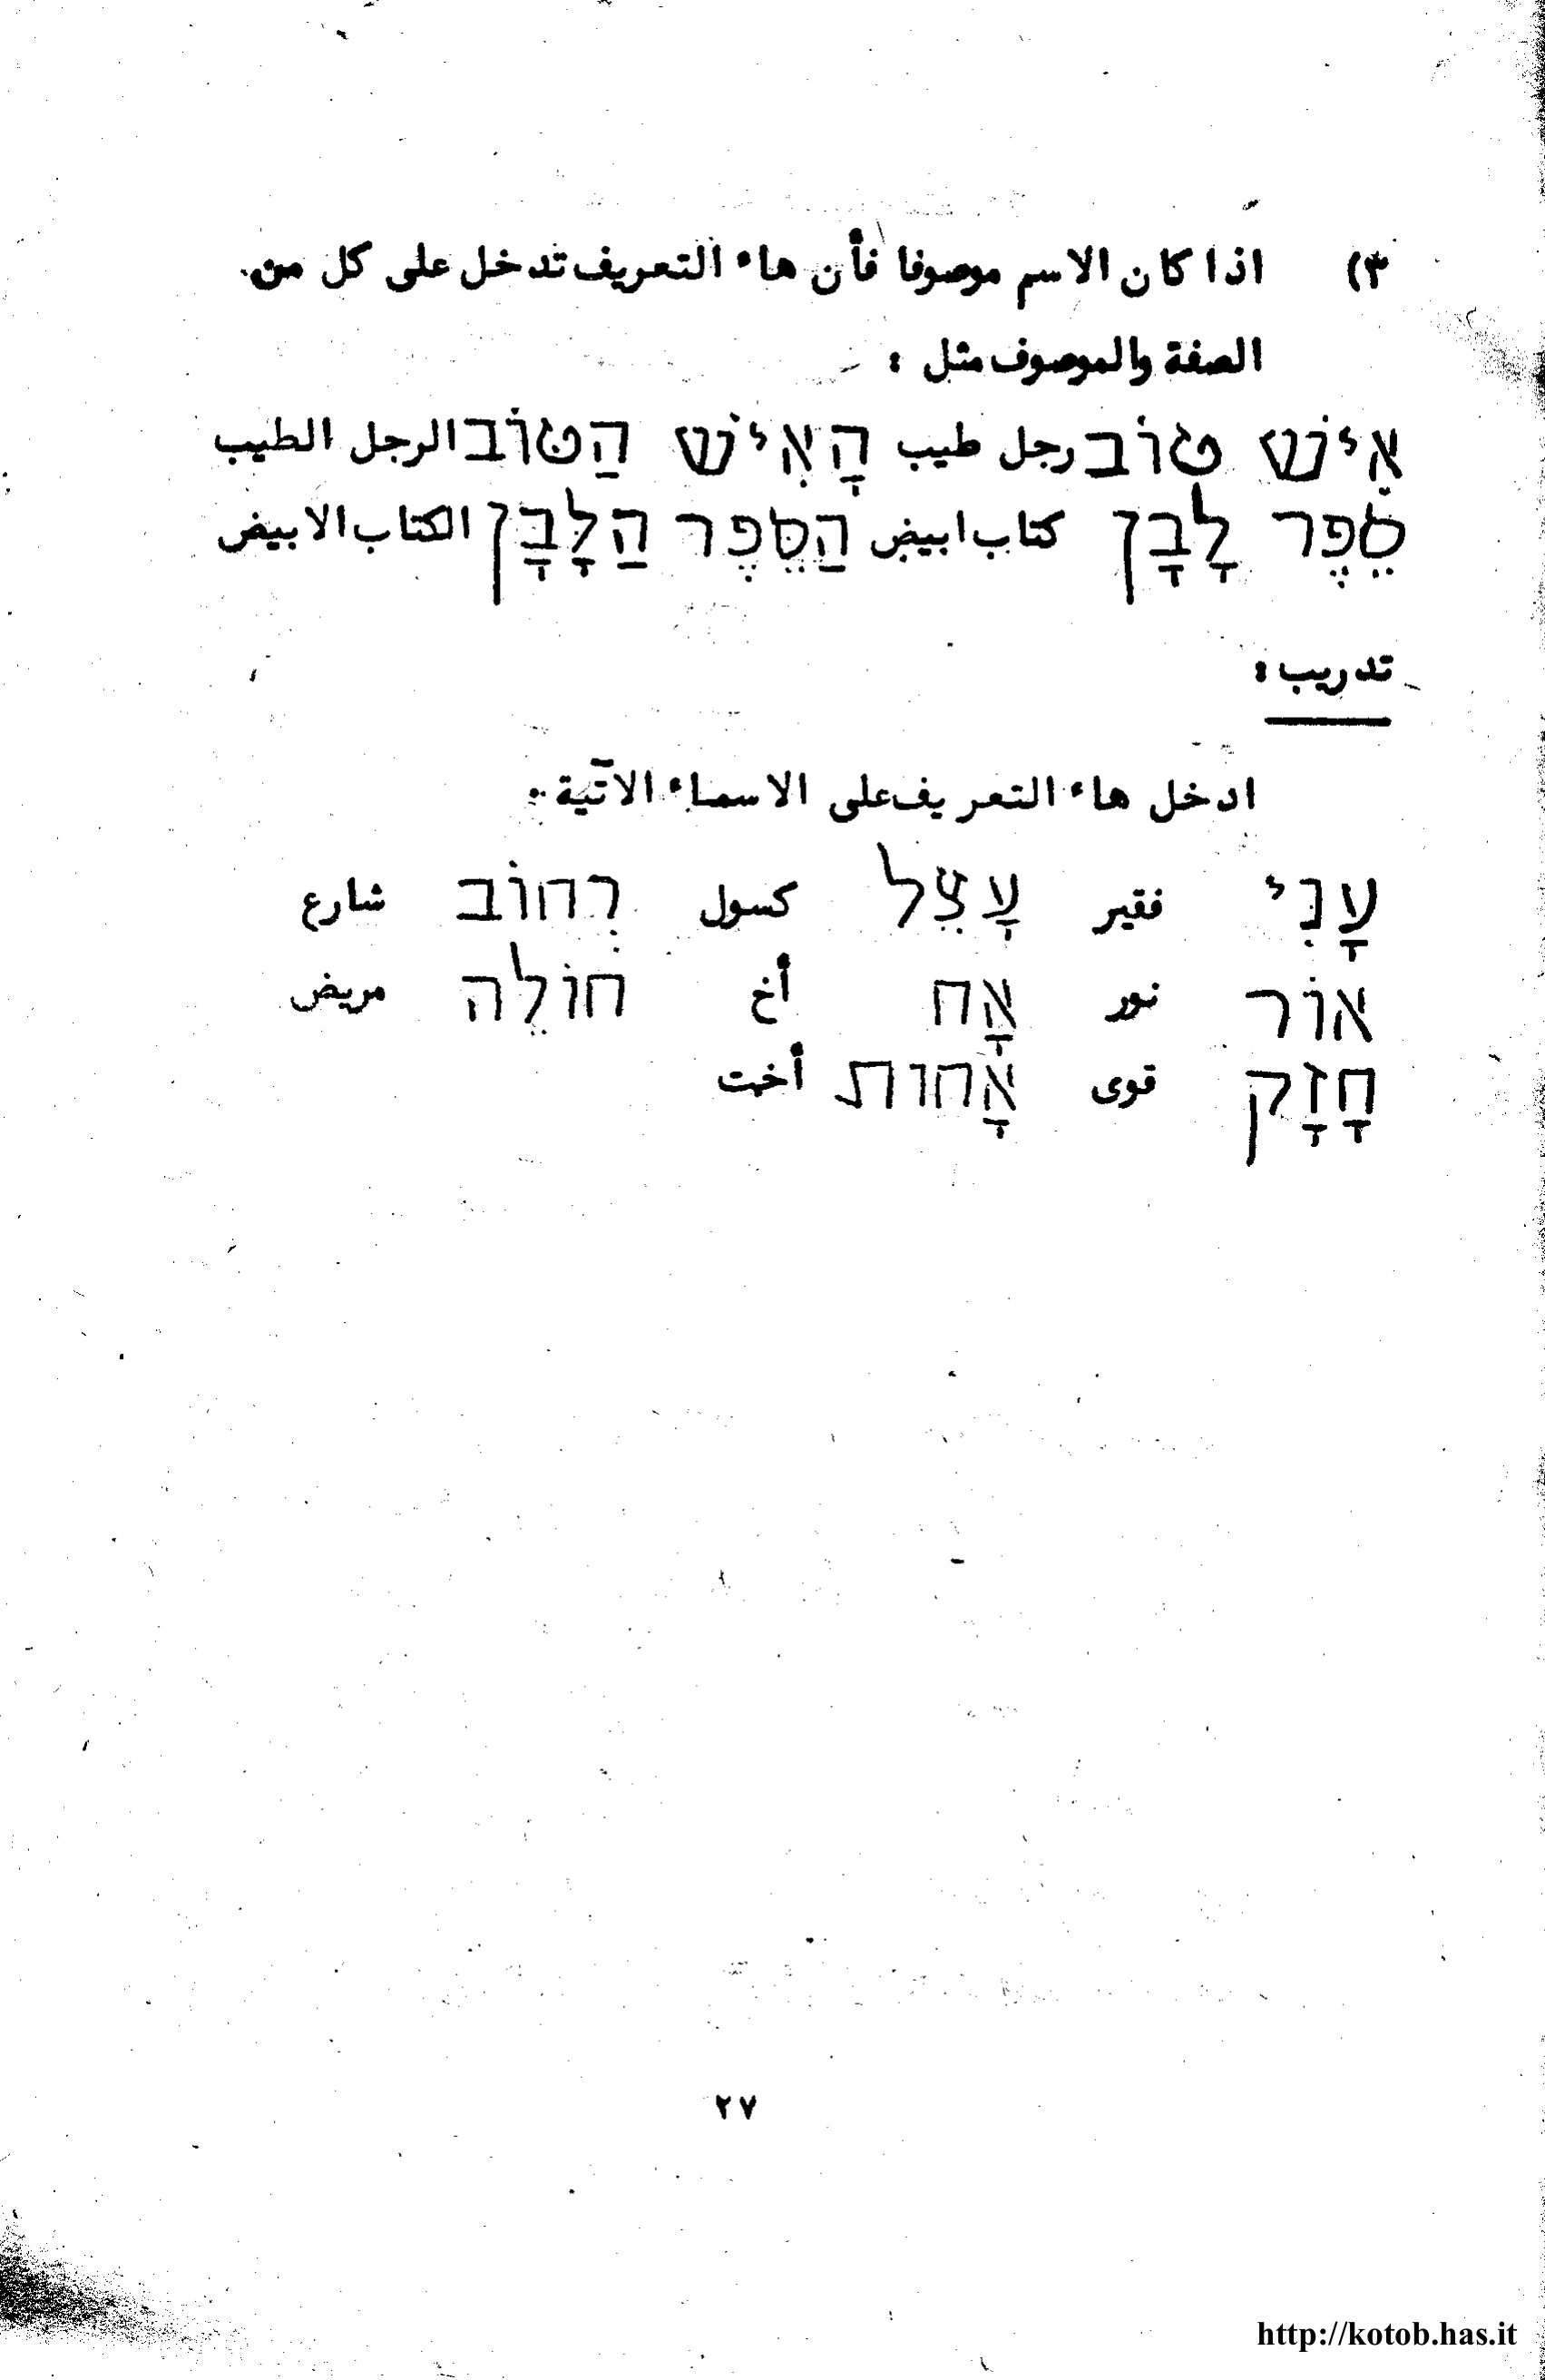 ٣) اذا كان الاسم موصوفا فأن هاء التعريف تدخل على كل من
الصفة والموصوف مثل :
אִישׁ טוֹב رجل طيب הָאִישׁ הַטּוֹב الرجل الطيب
סֵפֶר לָבָן كتاب ابيض הַסֵּפֶר הַלָּבָן الكتاب الابيض
تدريب :
ادخل هاء التعريف على الاسماء الآتية :
עָנִי فقير עָצֵל كسول רְחוֹב شارع
אוֹר نور אָח أخ חוֹלֶה مريض
חָזָק قوى אָחות أخت
٢٧
http://kotob.has.it